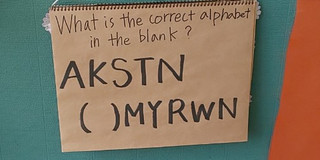 What is the correct alphabet
in the blank?
AKSTN
( )MYRWN